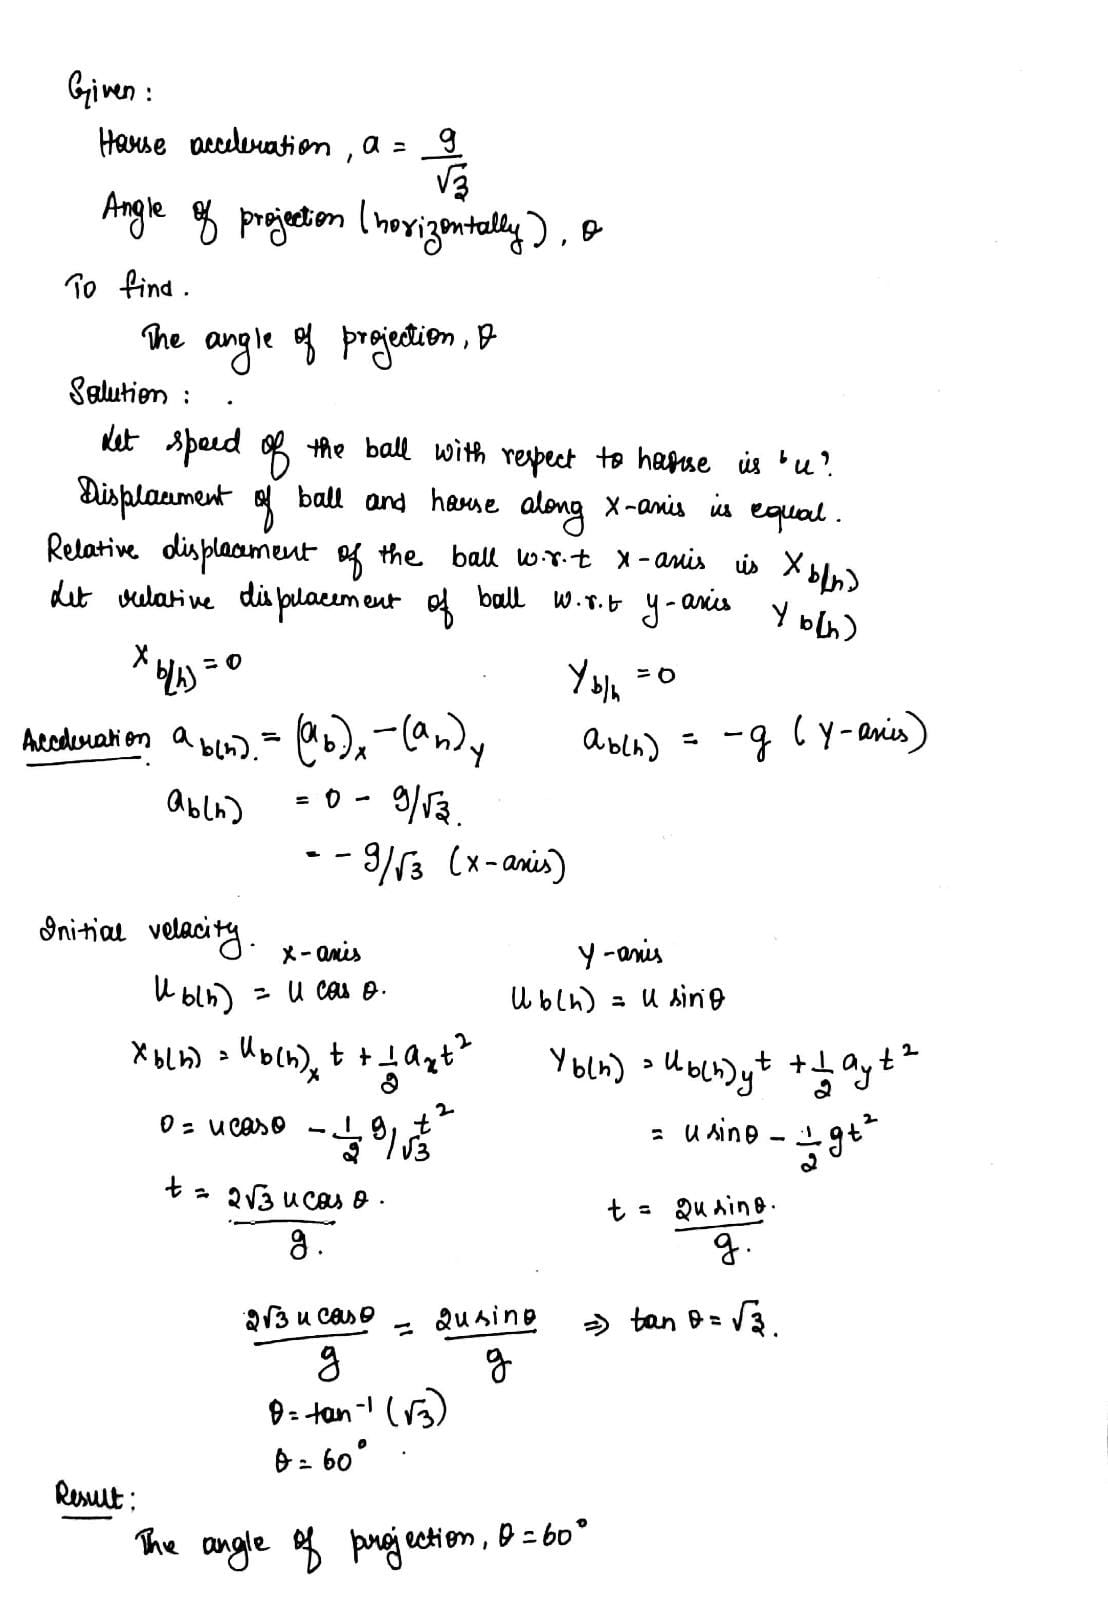 Given :
Harse acceleration , a = g/√3
Angle of projection (horizontally), θ
To find .
The angle of projection, θ
Salution : .
Let speed of the ball with respect to harse is 'u'.
Displacement of ball and harse along x-axis is equal.
Relative displacement of the ball w.r.t x-axis is X b(h)
Let relative displacement of ball w.r.t y-axis Y b(h)
X b/(h) = 0 Y b/h = 0
Acceleration a b(h). = (a b)x - (a h)y a b(h) = -g (Y-axis)
a b(h) = 0 - g/√3.
= - g/√3 (x-axis)
Initial velacity. x-axis y-axis
u b(h) = u cas θ. u b(h) = u sin θ
X b(h) = u b(h)x t + 1/2 a x t² Y b(h) = u b(h)y t + 1/2 a y t²
0 = u casθ - 1/2 g/√3 t² = u sinθ - 1/2 gt²
t = 2√3 u cas θ . / g. t = 2u sinθ. / g.
2√3 u casθ / g = 2u sinθ / g ⇒ tan θ = √3.
θ = tan⁻¹ (√3)
θ = 60° .
Result :
The angle of projection, θ = 60°